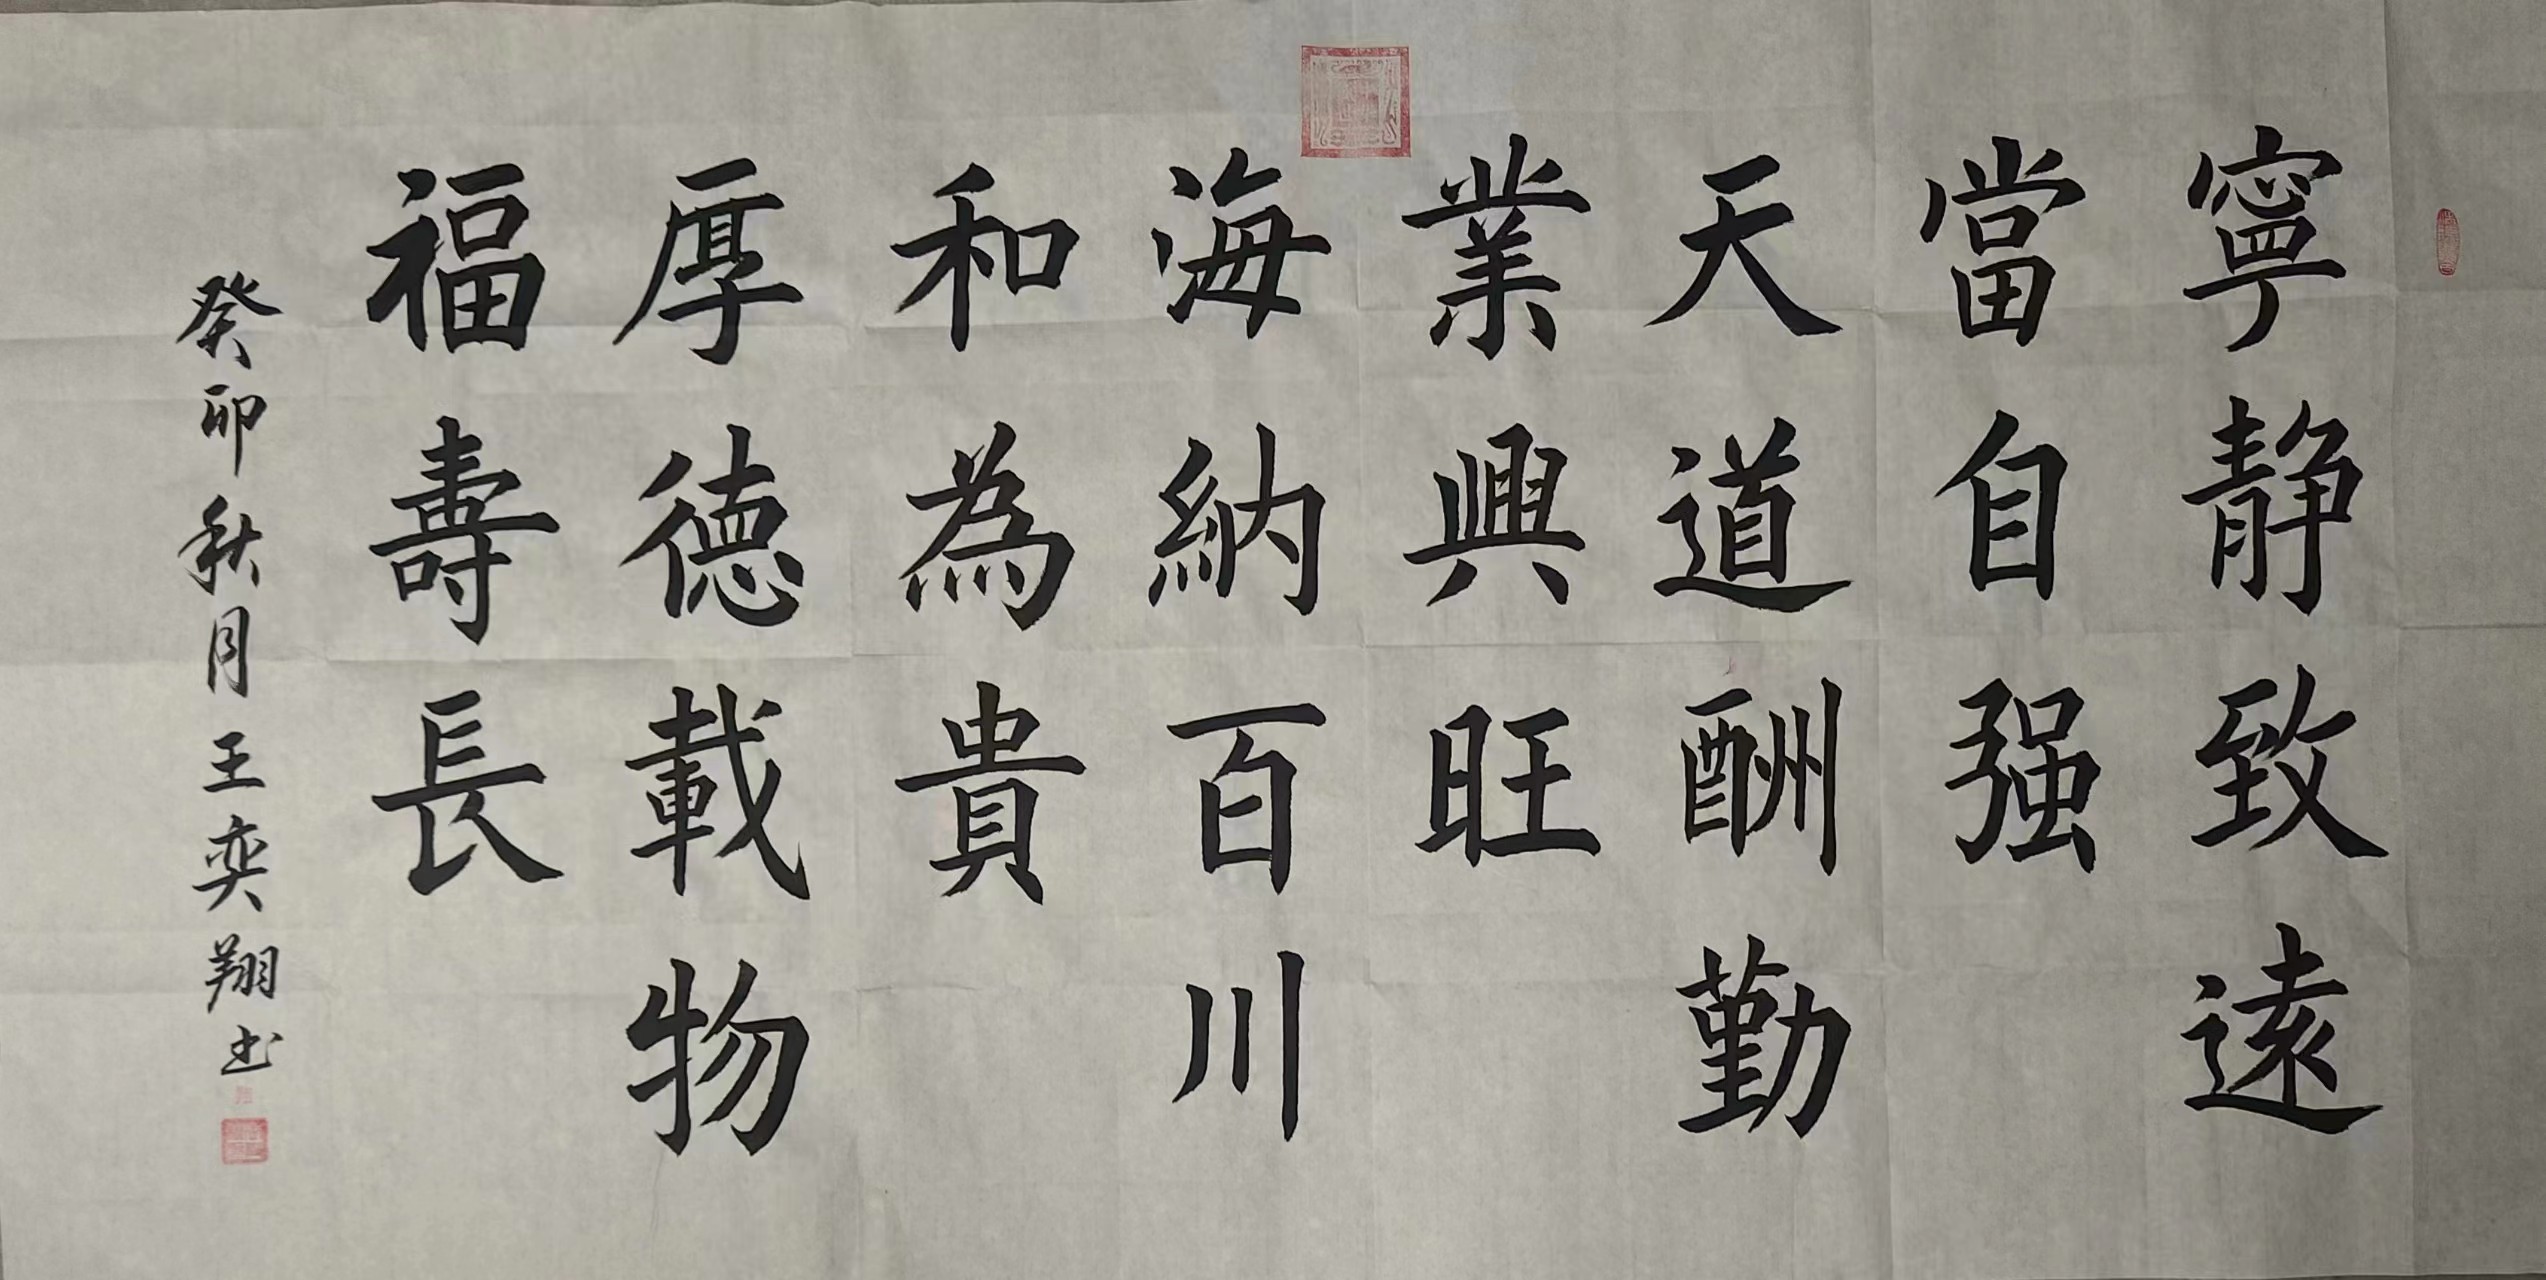 寧静致遠
當自强
天道酬勤
業興旺
海納百川
和為貴
厚德載物
福壽長
癸卯秋月王奕翔书